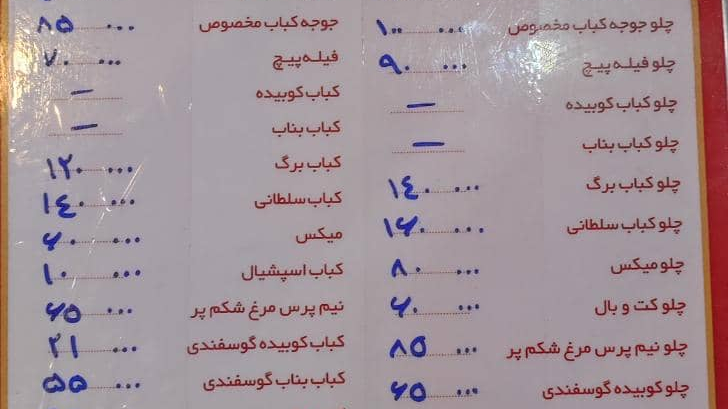 چلو جوجه کباب مخصوص ۱۰۰ ۰۰۰
چلو فیله پیچ ۹۰ ۰۰۰
چلو کباب کوبیده —
چلو کباب بناب —
چلو کباب برگ ۱٤۰ ۰۰۰
چلو کباب سلطانی ۱۶۰ ۰۰۰
چلو میکس ۸۰ ۰۰۰
چلو کت و بال ۶۰ ۰۰۰
چلو نیم پرس مرغ شکم پر ۸۵ ۰۰۰
چلو کوبیده گوسفندی ۶۵ ۰۰۰
جوجه کباب مخصوص ۸۵ ۰۰۰
فیله پیچ ۷۰ ۰۰۰
کباب کوبیده —
کباب بناب —
کباب برگ ۱۲۰ ۰۰۰
کباب سلطانی ۱٤۰ ۰۰۰
میکس ۶۰ ۰۰۰
کباب اسپشیال ۱۰ ۰۰۰
نیم پرس مرغ شکم پر ۶۵ ۰۰۰
کباب کوبیده گوسفندی ۲۱ ۰۰۰
کباب بناب گوسفندی ۵۵ ۰۰۰